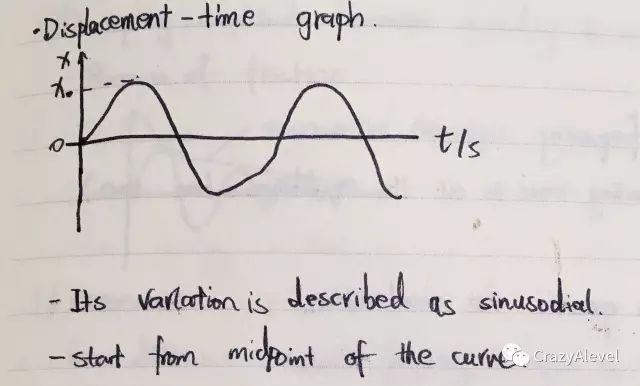 ·Displacement-time graph.
x
x₀
0
t/s
- Its variation is described as sinusodial.
- start from midpoint of the curve
CrazyAlevel